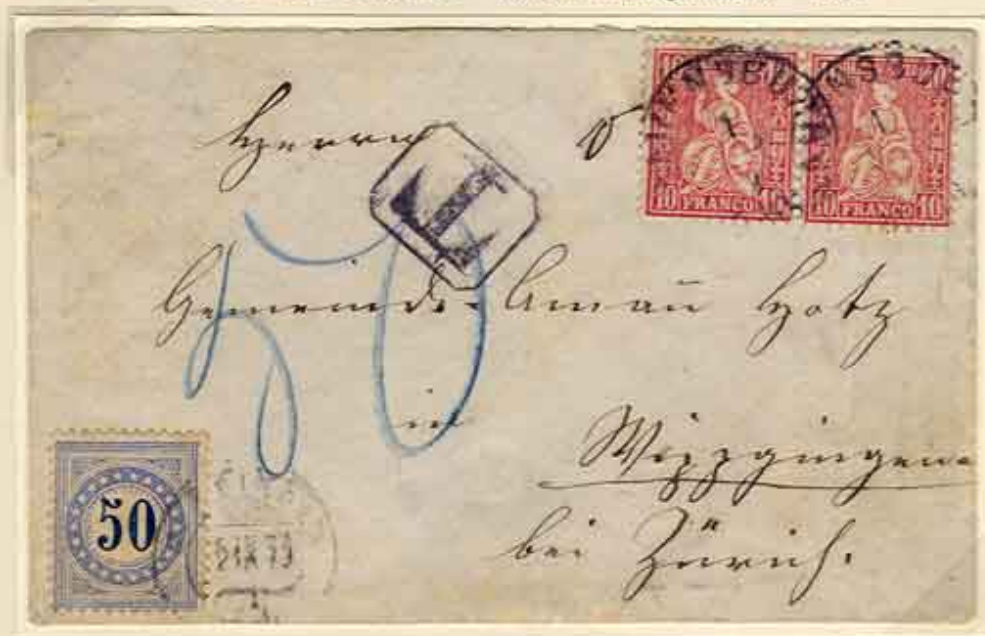 10 FRANCO 10
10 FRANCO 10
Herrn
T
50
Gemeinde-Ammann Hotz
in
Wipkingen
bei Zürich.
50